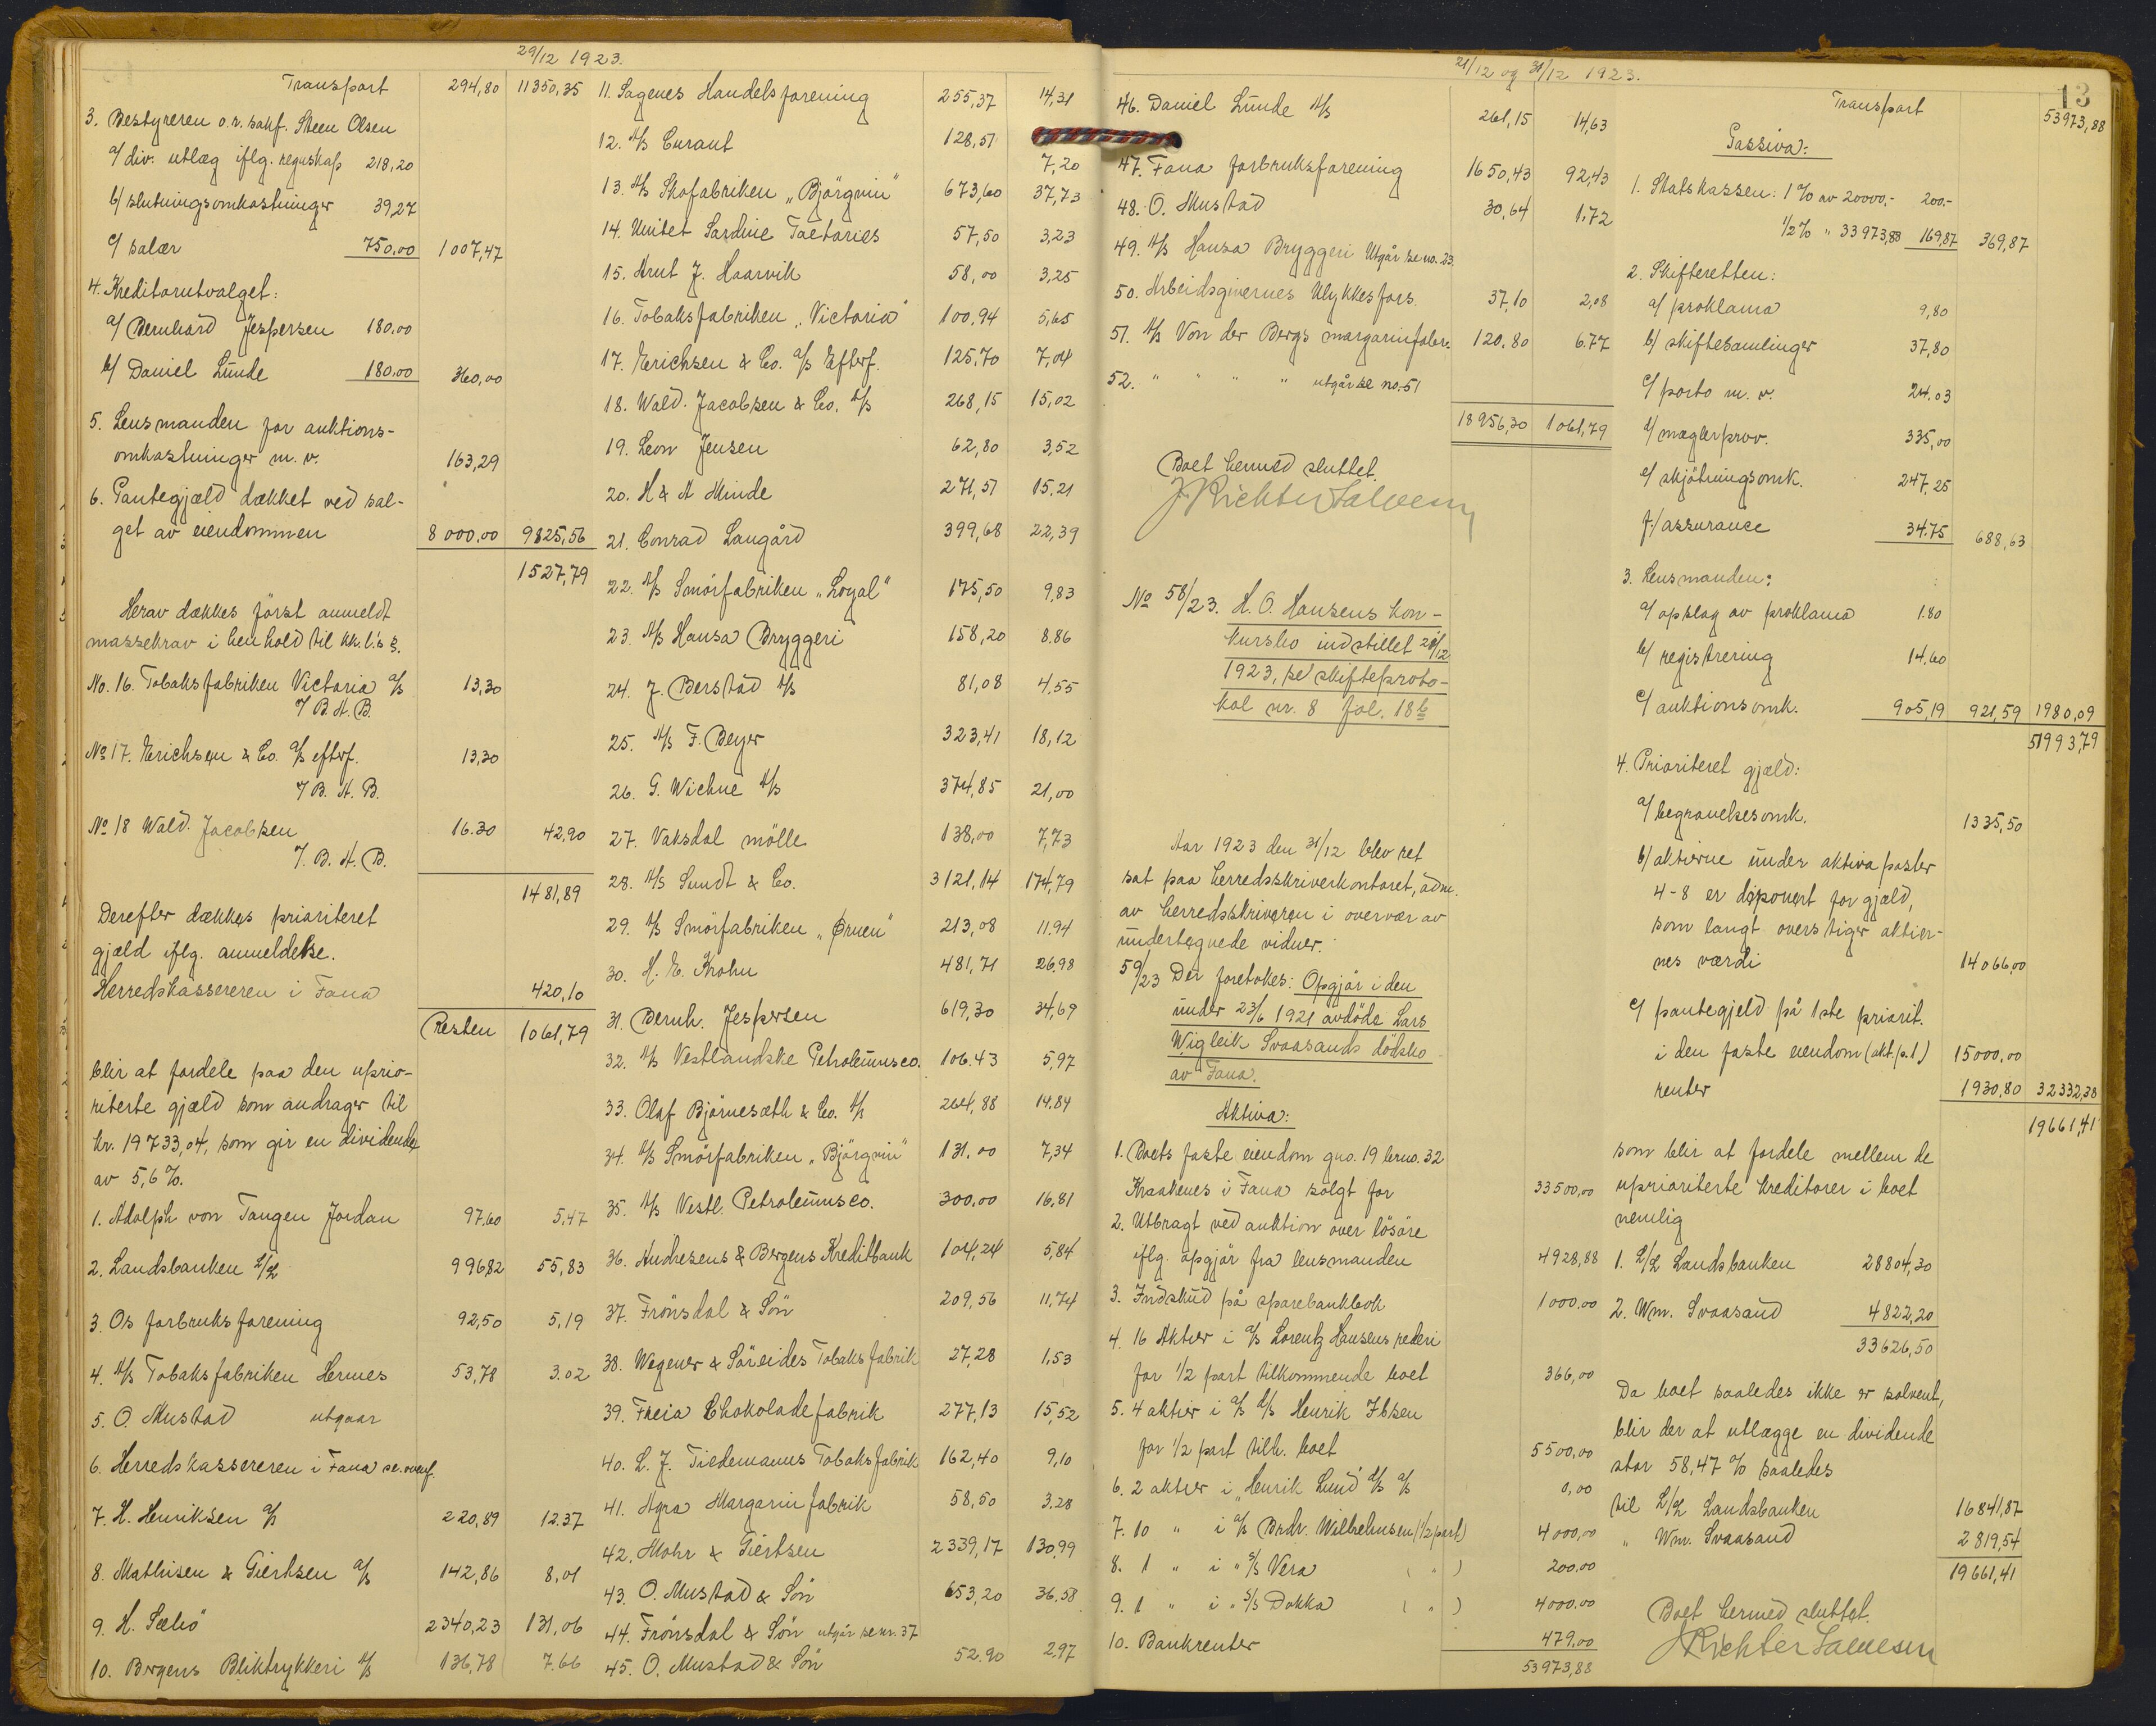 29/12 1923.
Transport 294,80 11350,35
3. Bestyreren o.r. sakf. Steen Olsen
a/ div. utlæg iflg. regnskap 218,20
b/ slutningsomkostninger 39,27
c/ salær 750,00 1007,47
4. Kreditorutvalget:
a/ Bernhard Jespersen 180.00
b/ Daniel Lunde 180.00 360,00
5. Lensmanden for auktions-
omkostninger m.v. 163,29
6. Pantegjæld dækket ved sal-
get av eiendommen 8000.00 9825,56
1527,79
Herav dækkes først anmeldt
massekrav i henhold til kk. l.'s §.
No. 16. Tobaksfabriken Victoria a/s 13,30
7 B. A. B.
No 17. Erichsen & Co. a/s efterf. 13,30
7 B. A. B.
No 18 Wald. Jacobsen 16.30 42,90
7. B. A. B.
1481,89
Derefter dækkes prioritert
gjæld iflg. anmeldelse.
Herredskassereren i Fana 420,10
Resten 1061,79
blir at fordele paa den uprio-
riterte gjæld som andrager til
kr. 19733,04, som gir en dividende
av 5,6%.
1. Adolph von Tangen Jordan 97,60 5,47
2. Landsbanken L/L 996,82 55,83
3. Os forbruksforening 92,50 5,19
4. A/s Tobaksfabriken Hermes 53,78 3.02
5. O. Mustad utgaar
6. Herredskassereren i Fana se ovenf.
7. H. Henriksen a/s 220,89 12.37
8. Mathisen & Giertsen a/s 142,86 8,01
9. H. Sæbö 2340,23 131,06
10. Bergens Bliktrykkeri A/s 136,78 7.66
11. Sagenes Handelsforening 255,37 14,31
12. A/s Curant 128,51 7,20
13. A/s Skofabriken „Björgvin" 673,60 37,73
14. Unitet Sardine Factories 57,50 3,23
15. Arnt J. Haarvik 58,00 3,25
16. Tobaksfabriken „Victoria" 100,94 5,65
17. Erichsen & Co. a/s Efterf. 125,70 7,04
18. Wald. Jacobsen & Co. A/s 268,15 15,02
19. Leon Jensen 62,80 3,52
20. H & A Minde 271,51 15,21
21. Conrad Langård 399,68 22,39
22. A/s Smörfabriken „Loyal" 175,50 9,83
23. A/s Hansa Bryggeri 158,20 8.86
24. J. Berstad A/s 81,08 4,55
25. A/s F. Beyer 323,41 18,12
26. G. Wiehne A/s 374,85 21,00
27. Vaksdal mölle 138,00 7,73
28. A/s Sundt & Co. 3121,14 174,79
29. A/s Smörfabriken „Ørnen" 213,08 11.94
30. H. E. Krohn 481,71 26,98
31. Bernh. Jespersen 619,30 34,69
32. A/s Vestlandske Petroleumsco. 106.43 5,97
33. Olaf Björnesæth & Co. A/s 264,88 14,84
34. A/s Smörfabriken „Björgvin" 131.00 7,34
35. A/s Vestl. Petroleumsco. 300,00 16,81
36. Andresens & Bergens Kreditbank 104,24 5,84
37. Frönsdal & Sön 209,56 11,74
38. Wegener & Söreides Tobaksfabrik 27,28 1,53
39. Freia Chokoladefabrik 277,13 15,52
40. L. J. Tiedemanns Tobaksfabrik 162,40 9,10
41. Agra Margarinfabrik 58,50 3.28
42. Mohr & Giertsen 2339,17 130,99
43. O. Mustad & Sön 653,20 36,58
44. Frönsdal & Sön utgår se nr. 37
45. O. Mustad & Sön 52.90 2.97
21/12 og 31/12 1923.
13
46. Daniel Lunde A/s 261,15 14,63
47. Fana forbruksforening 1650,43 92,43
48. O. Mustad 30,64 1,72
49. A/s Hansa Bryggeri Utgår se no. 23.
50. Arbeidsgivernes Ulykkesfors. 37,10 2,08
51. A/s Von der Bergs margarinfabr. 120,80 6.77
52. " " " " utgår se no. 51
18956,30 1061,79
Boet hermed sluttet.
J Richter Salvesen
No 58/23. H. O. Hansens kon-
kursbo indstillet 28/12
1923, se skifteproto-
kol nr. 8 fol. 18b
Aar 1923 den 31/12 blev ret
sat paa herredsskriverkontoret, adm.
av herredsskriveren i overvær av
undertegnede vidner.
59/23 Der foretokes: Opgjör i den
under 23/6 1921 avdöde Lars
Wigleik Svaasands dödsbo
av Fana.
Aktiva:
1. Boets faste eiendom gno. 19 brno. 32
Kraakenes i Fana solgt for 33500,00
2. Utbragt ved auktion over lösöre
iflg. opgjör fra lensmanden 4928,88
3. Indskud på sparebankbok 1000.00
4. 16 Aktier i a/s Lorentz Hansens rederi
for 1/2 part tilkommende boet 366,00
5. 4 aktier i a/s d/s Henrik Ibsen
for 1/2 part tilh. boet 5500,00
6. 2 aktier i „Henrik Lund" d/s a/s 0,00
7. 10 " i a/s Brdr. Wilhelmsen (1/2 part) 4000,00
8. 1 " i " s/s Vera ( " ) 200.00
9. 1 " i " s/s Dokka ( " ) 4000.00
10. Bankrenter 479,00
53973,88
Transport 53973,88
Passiva:
1. Statskassen: 1% av 20000,- 200.-
1/2% " 33973,88 169,87 369,87
2. Skifteretten:
a/ proklama 9,80
b/ skiftesamlinger 37,80
c/ porto m. v. 24.03
d/ mæglerprov. 335,00
e/ skjötningsomk. 247,25
f/ assurance 34.75 688,63
3. Lensmanden:
a/ opslag av proklama 1.80
b/ registrering 14.60
c/ auktionsomk. 905,19 921,59 1980,09
51993,79
4. Prioriteret gjæld:
a/ begravelsesomk. 1335,50
b/ aktierne under aktiva poster
4-8 er deponert for gjæld,
som langt overstiger aktier-
nes værdi 14066,00
c/ pantegjeld på 1ste priorit.
i den faste eiendom (akt. p. 1) 15000,00
renter 1930,80 32332,38
19661,41
som blir at fordele mellem de
uprioriterte kreditorer i boet
nemlig
1. L/L Landsbanken 28804,30
2. Wm. Svaasand 4822,20
33626,50
Da boet saaledes ikke er solvent,
blir der at utlægge en dividende
stor 58,47 % saaledes
til L/L Landsbanken 16841,87
" Wm. Svaasand 2819,54
19661,41
Boet hermed sluttet.
J Richter Salvesen